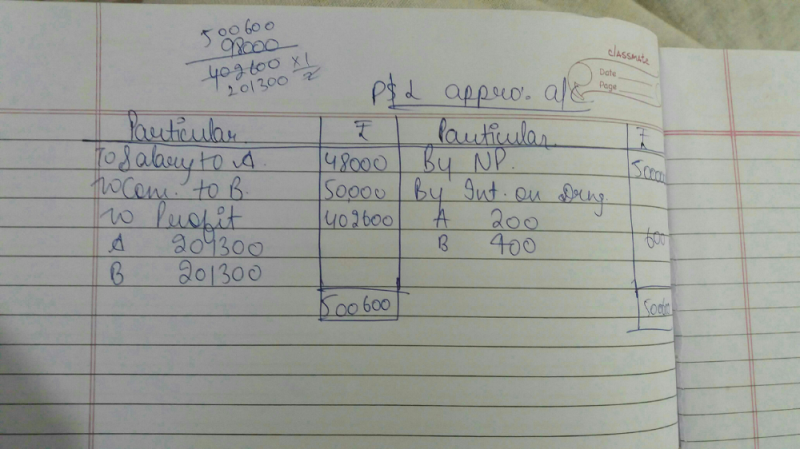 500600
98000
402600 x 1/2
201300
classmate
Date
Page
P$L appro. a/c
Particular ₹ Particular ₹
To Salary to A. 48000 By NP. 500000
To Com. to B. 50,000 By Int. on Drng.
To Profit 402600 A 200
A 201300 B 400 600
B 201300
500600 500600